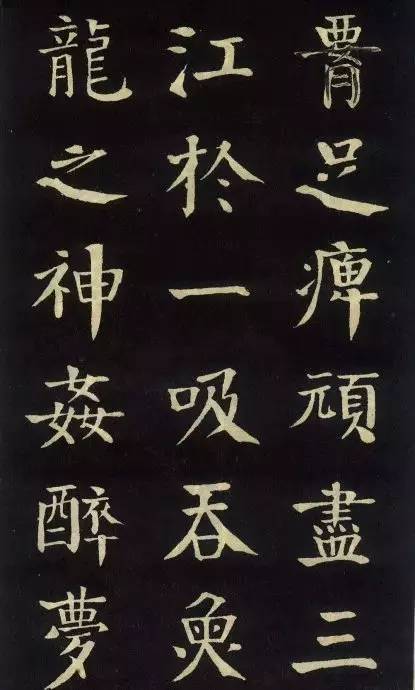 足痺頑盡三
江於一吸吞魚
龍之神姦醉夢